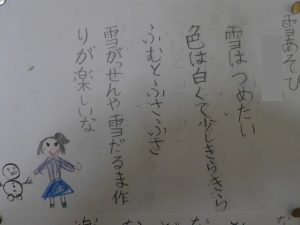 雪あそび
雪はつめたい
色は白くて少しきらきら
ふむとふさふさ
雪がっせんや雪だるま作
りが楽しいな